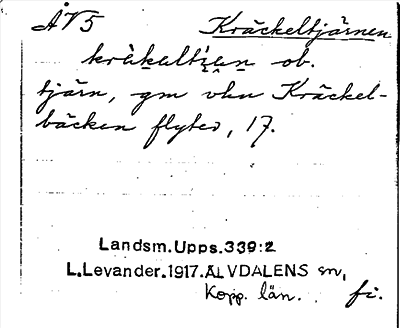 ÅV5 Kräckeltjärnen
kràkalti̯an ob.
tjärn, gm vkn Kräckel-
bäcken flyter, 17.
Landsm.Upps.339:2
L.Levander.1917.ÄLVDALENS sn,
Kopp. län. fi.